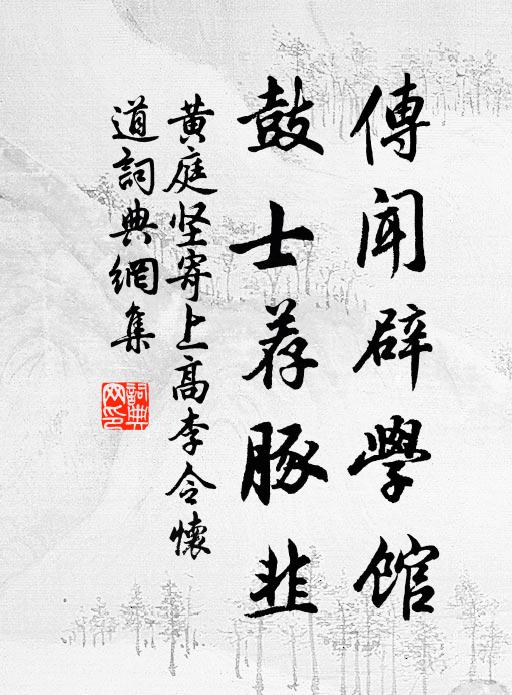 傳聞辟學館
鼓士荐豚韭
黄庭坚寄上高李令懷
道詞典網集
詞典网印